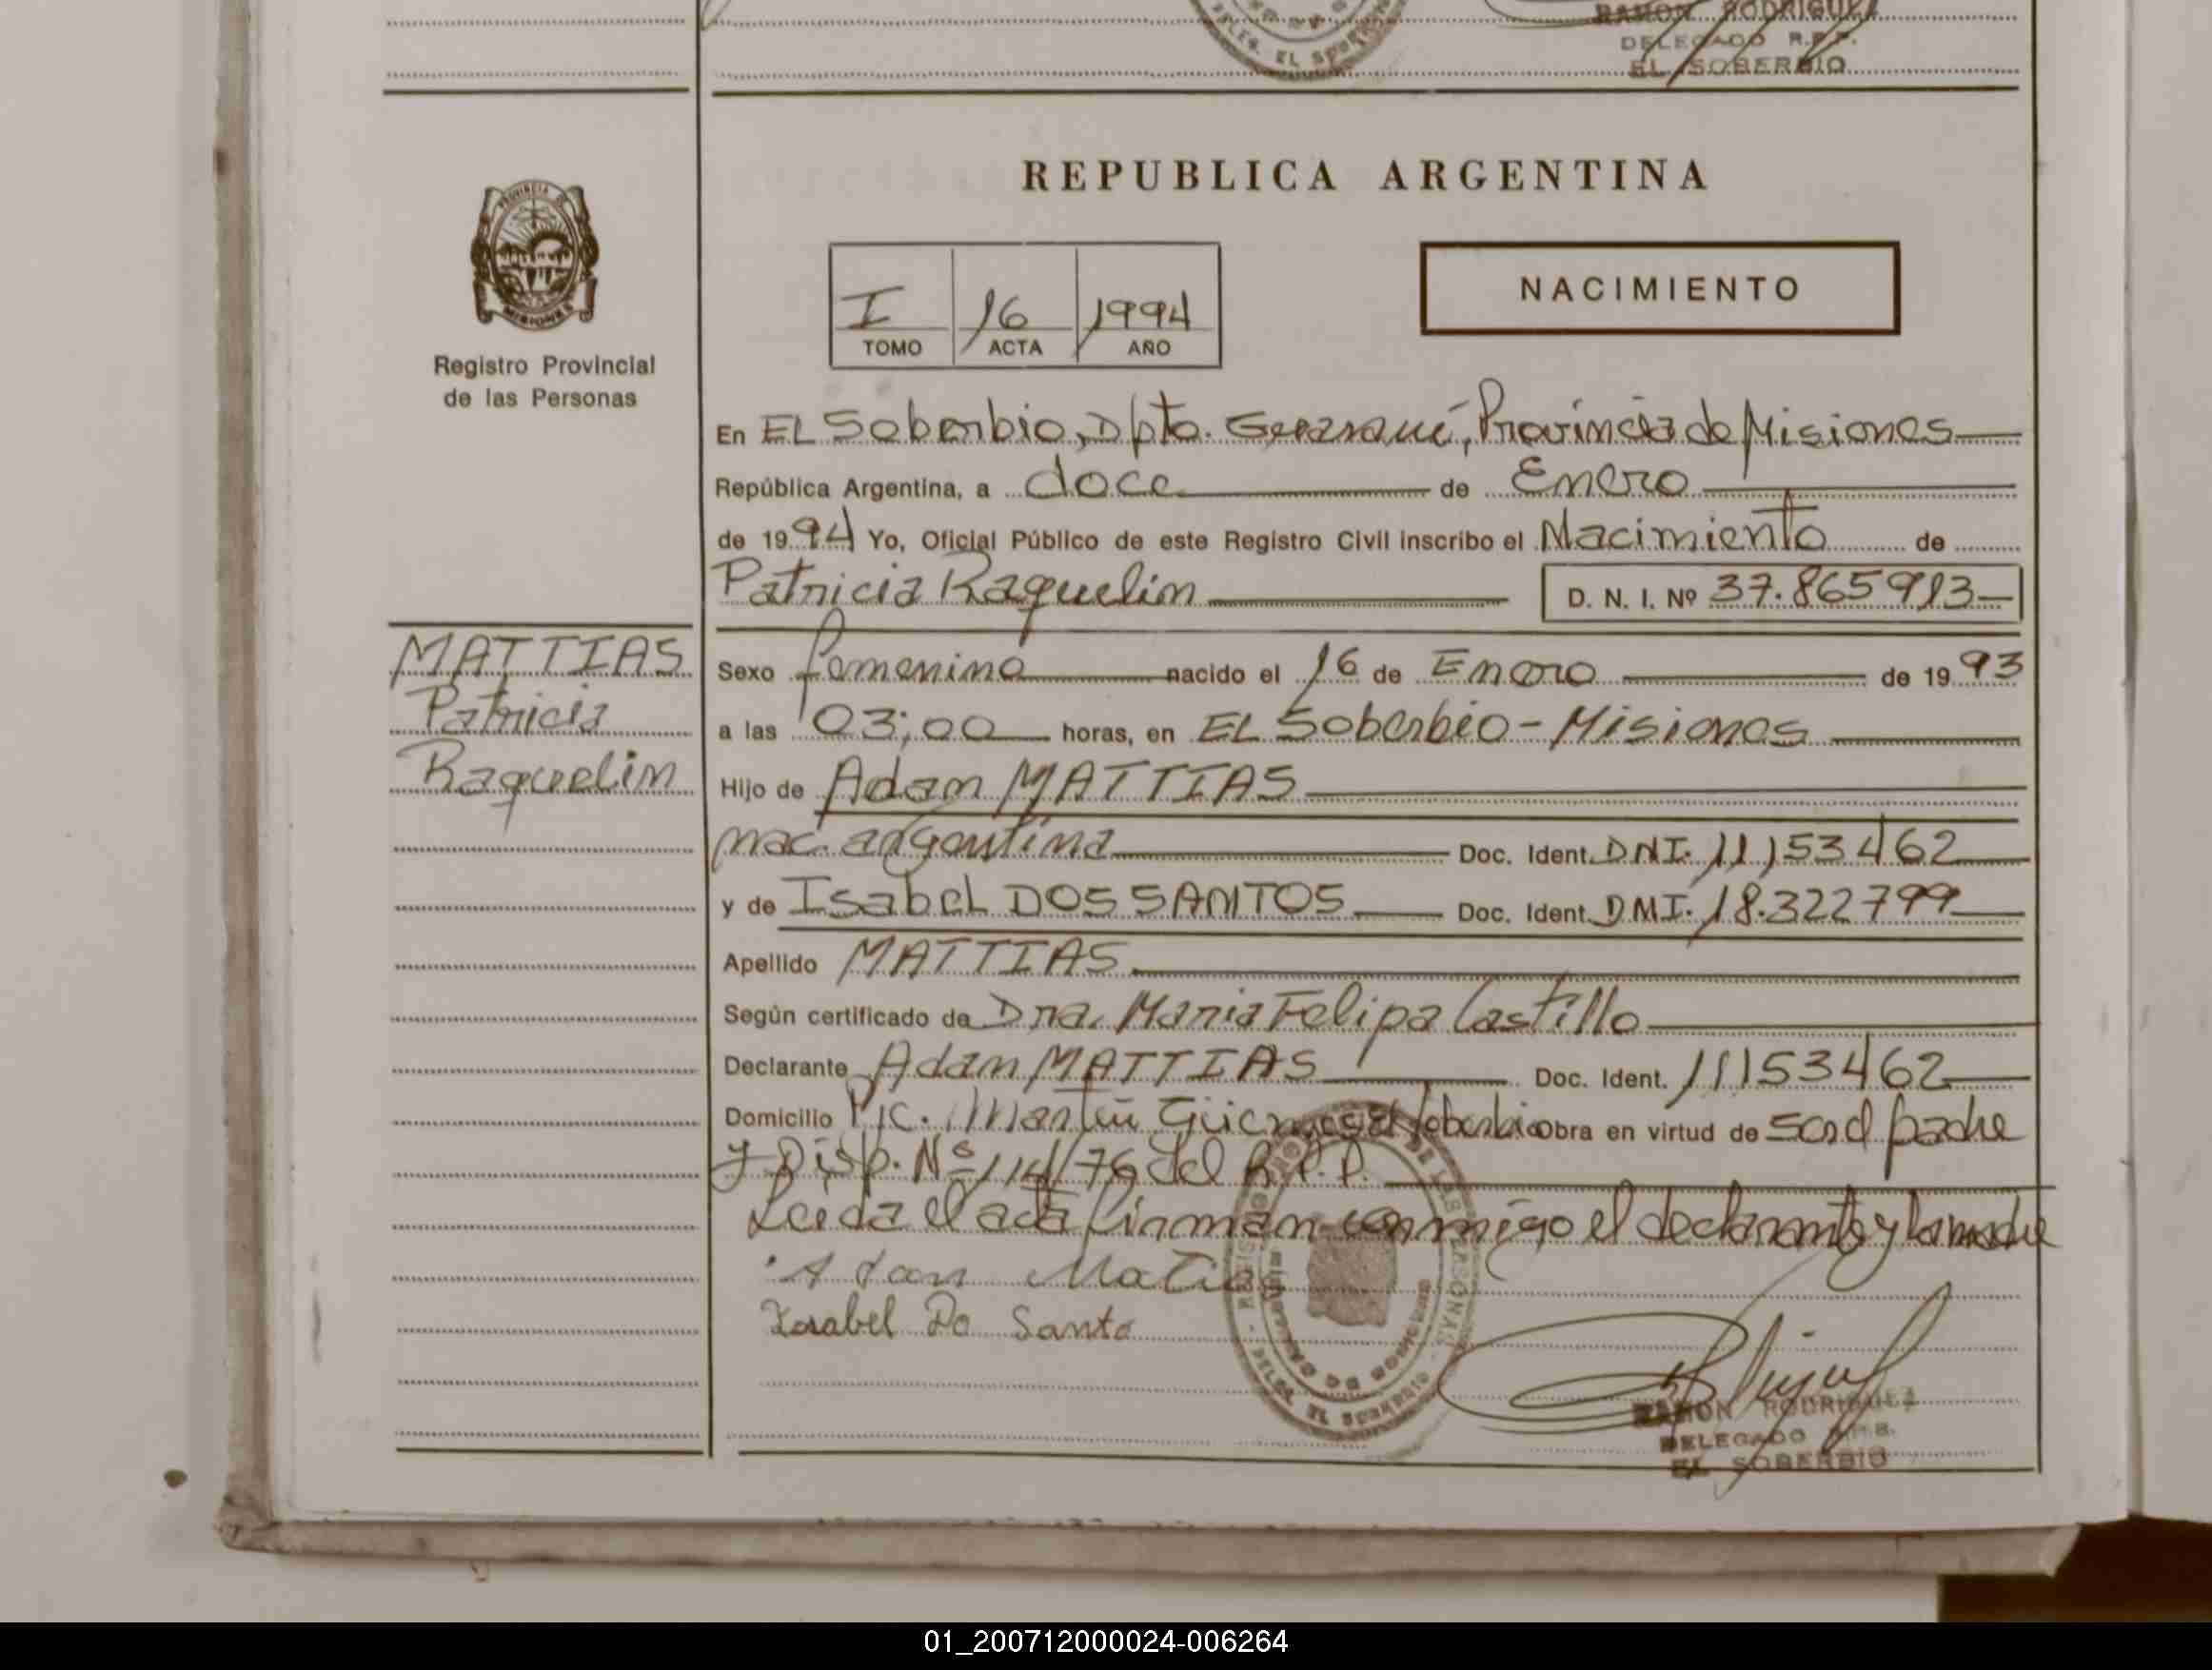 RAMON RODRIGUEZ
DELEGADO R.P.P.
EL SOBERBIO
REPUBLICA ARGENTINA
PROVINCIA DE
MISIONES
Registro Provincial
de las Personas
NACIMIENTO
I 16 1994
TOMO ACTA AÑO
En EL Soberbio, Dpto. Guaraní, Provincia de Misiones
República Argentina, a doce de Enero
de 1994 Yo, Oficial Público de este Registro Civil inscribo el Nacimiento de
Patricia Raquelin D. N. I. Nº 37.865913
MATTIAS
Patricia
Raquelin
Sexo femenino nacido el 16 de Enero de 1993
a las 03;00 horas, en EL Soberbio - Misiones
Hijo de Adan MATTIAS
nac. argentina Doc. Ident. DNI. 11153462
y de Isabel DOS SANTOS Doc. Ident. DNI. 18.322799
Apellido MATTIAS
Según certificado de Dra. Maria Felipa Castillo
Declarante Adan MATTIAS Doc. Ident. 11153462
Domicilio Pic. Martín Güemes El Soberbio Obra en virtud de ser el padre
y Disp. Nº 114/76 del R.P.P.
Leida el acta firman conmigo el declarante y la madre
Adan Matias
Isabel Do Santo
DELEG. EL SOBERBIO
RAMON RODRIGUEZ
DELEGADO
EL SOBERBIO
01_200712000024-006264